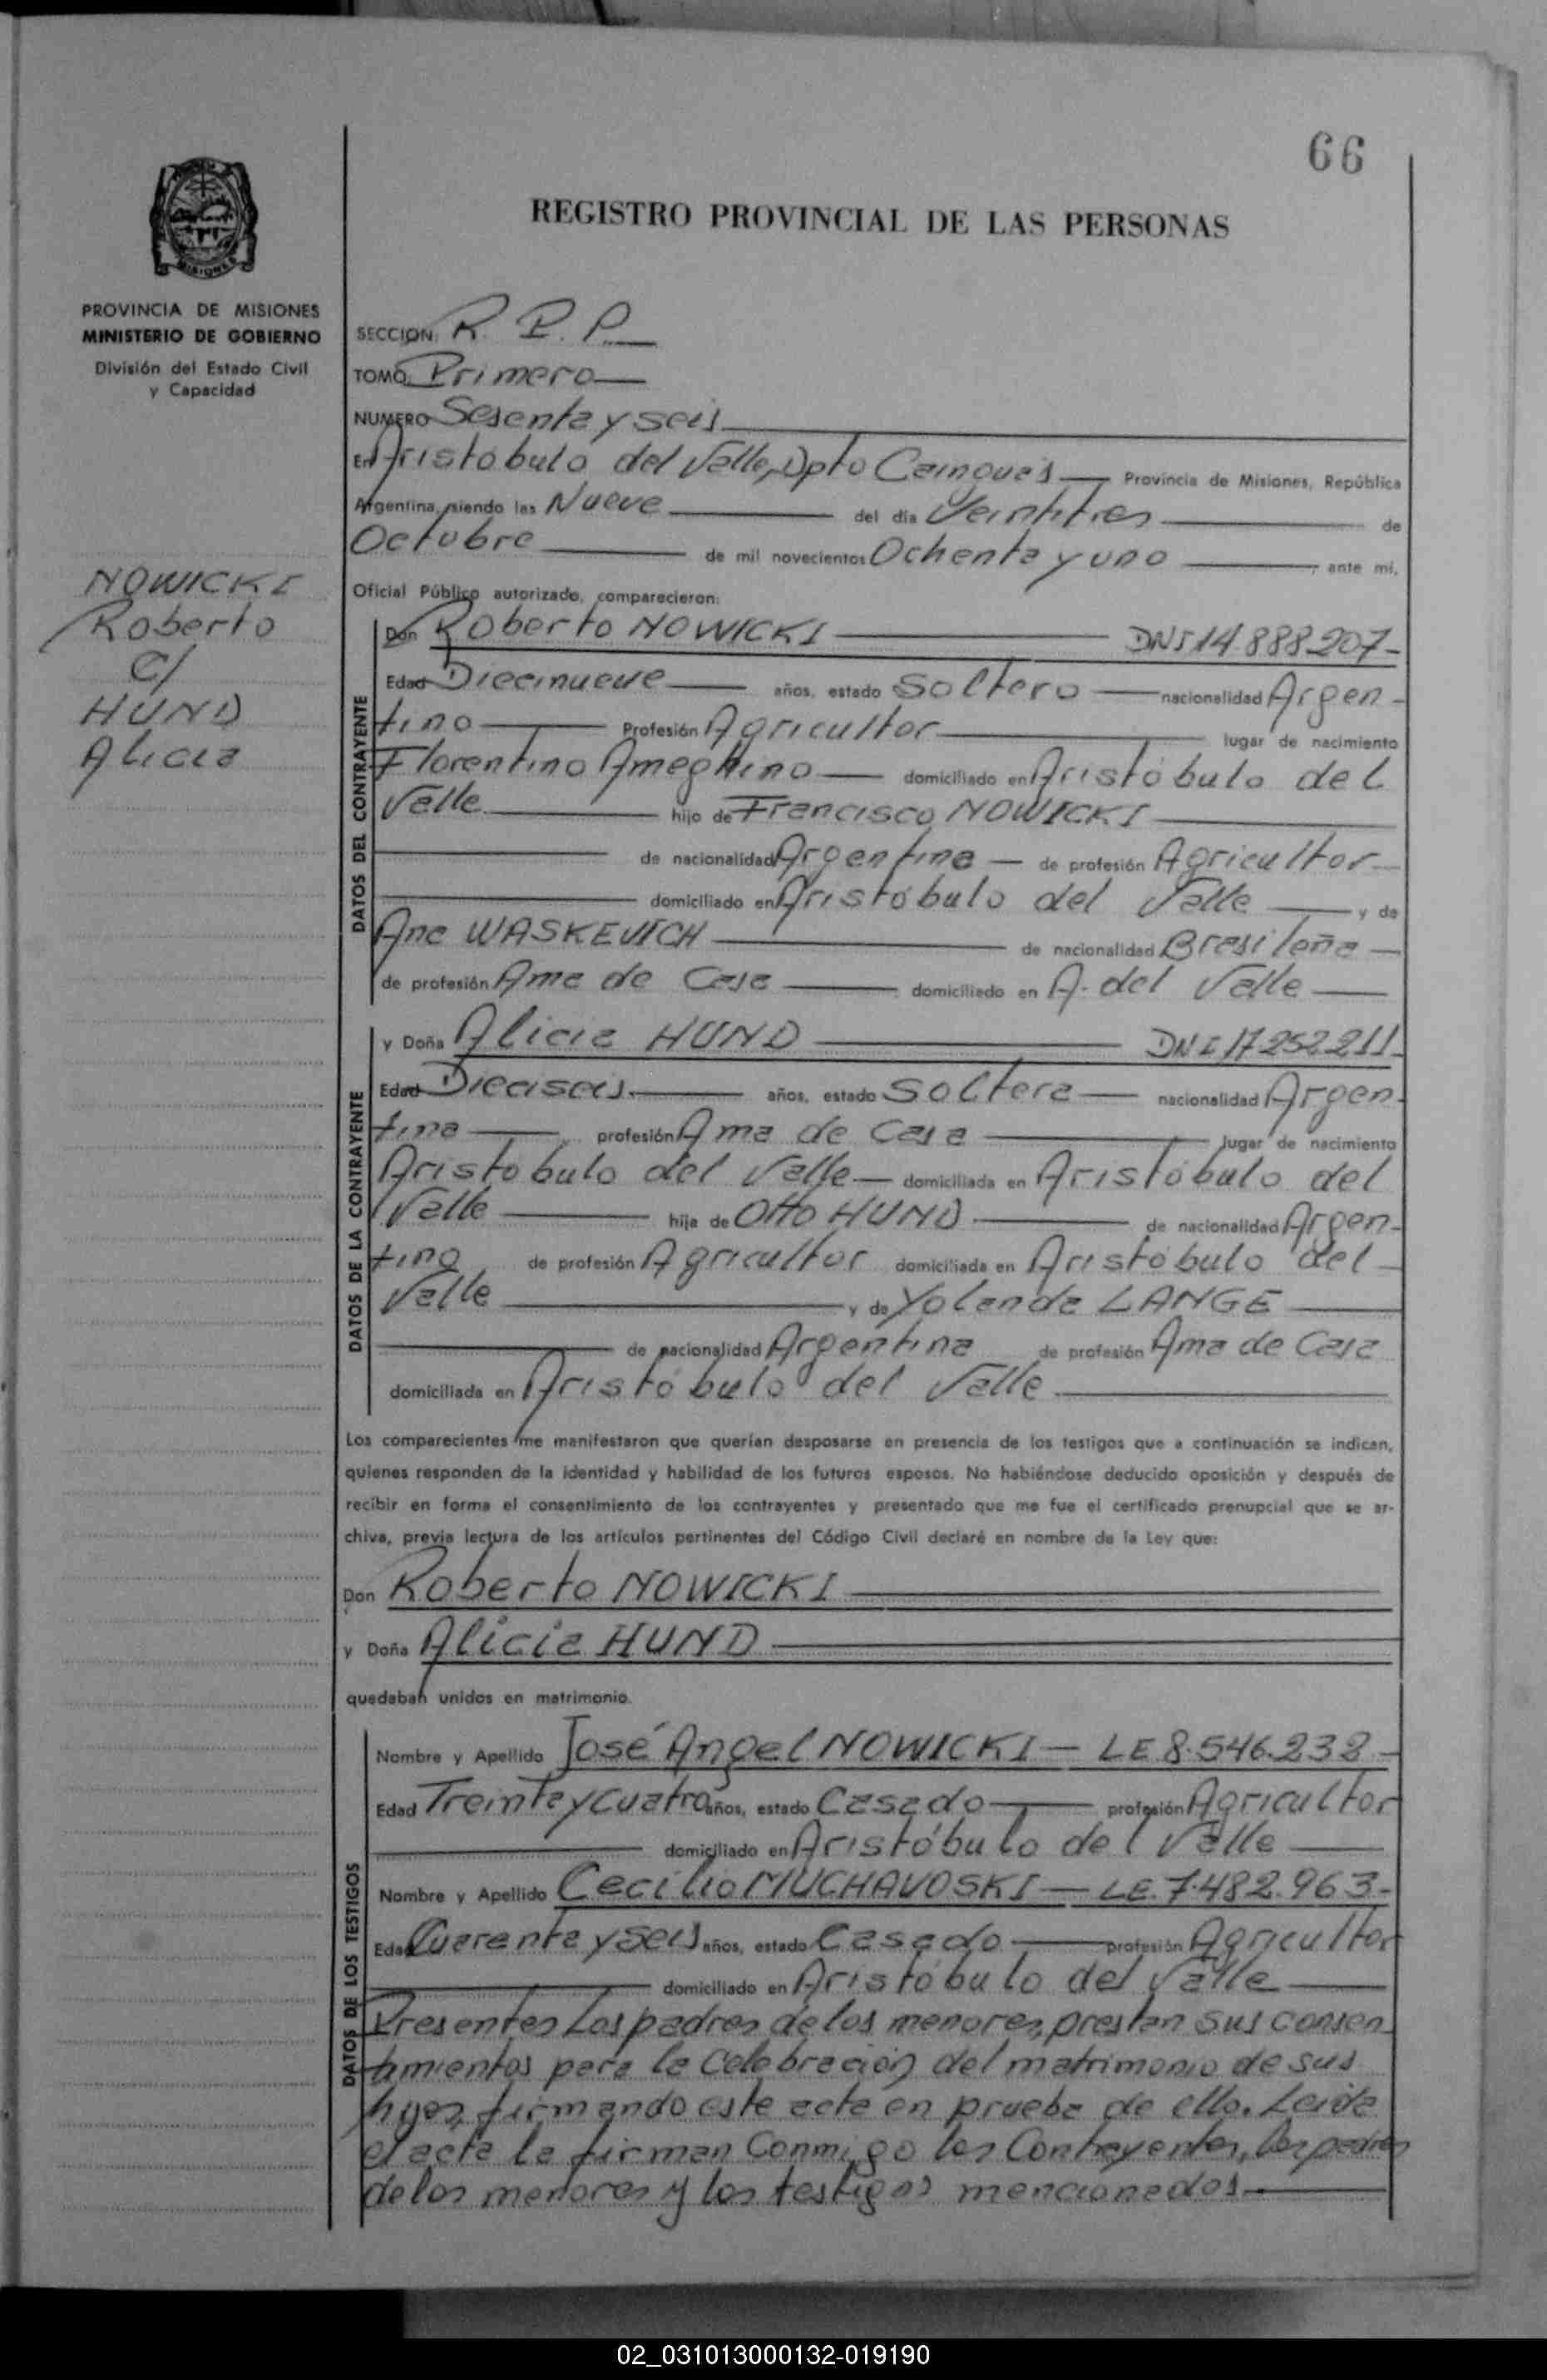 66
REGISTRO PROVINCIAL DE LAS PERSONAS
MISIONES
PROVINCIA DE MISIONES
MINISTERIO DE GOBIERNO
División del Estado Civil
y Capacidad
NOWICKI
Roberto
C/
HUND
Alicia
SECCION: R. P. P.
TOMO Primero
NUMERO Sesenta y seis
En Aristóbulo del Valle, Dpto Cainguás Provincia de Misiones, República
Argentina, siendo las Nueve del día Veintitres de
Octubre de mil novecientos Ochenta y uno, ante mí,
Oficial Público autorizado, comparecieron:
DATOS DEL CONTRAYENTE
Don Roberto NOWICKI DNI 14.888.207-
Edad Diecinueve años, estado Soltero nacionalidad Argen-
tino Profesión Agricultor lugar de nacimiento
Florentino Ameghino domiciliado en Aristóbulo del
Valle hijo de Francisco NOWICKI
de nacionalidad Argentina de profesión Agricultor
domiciliado en Aristóbulo del Valle y de
Ana WASKEVICH de nacionalidad Brasileña
de profesión Ama de Casa domiciliado en A. del Valle
DATOS DE LA CONTRAYENTE
y Doña Alicia HUND DNI 17.252.211-
Edad Dieciseis años, estado Soltera nacionalidad Argen-
tina profesión Ama de Casa lugar de nacimiento
Aristobulo del Valle domiciliada en Aristóbulo del
Valle hija de Otto HUND de nacionalidad Argen-
tino de profesión Agricultor domiciliada en Aristóbulo del
Valle y de Yolanda LANGE
de nacionalidad Argentina de profesión Ama de Casa
domiciliada en Aristóbulo del Valle
Los comparecientes me manifestaron que querían desposarse en presencia de los testigos que a continuación se indican,
quienes responden de la identidad y habilidad de los futuros esposos. No habiéndose deducido oposición y después de
recibir en forma el consentimiento de los contrayentes y presentado que me fue el certificado prenupcial que se ar-
chiva, previa lectura de los artículos pertinentes del Código Civil declaré en nombre de la Ley que:
Don Roberto NOWICKI
y Doña Alicia HUND
quedaban unidos en matrimonio.
DATOS DE LOS TESTIGOS
Nombre y Apellido José Angel NOWICKI - LE 8.546.232-
Edad Treinta y cuatro años, estado Casado profesión Agricultor
domiciliado en Aristóbulo del Valle
Nombre y Apellido Cecilio MUCHAVOSKI - LE. 7.482.963-
Edad Cuarenta y seis años, estado Casado profesión Agricultor
domiciliado en Aristóbulo del Valle
Presentes Los padres de los menores, prestan sus consen
timientos para la Celebración del matrimonio de sus
hijos, firmando este acta en prueba de ello. Leida
el acta la firman Conmigo los Contrayentes, los padres
de los menores y los testigos mencionados
02_031013000132-019190